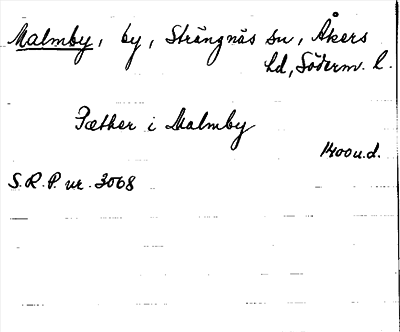 Malmby, by, Strängnäs sn, Åkers
hd, Söderm. l.
Pæther i Malmby
1400 u.d.
S.R.P. nr. 3068